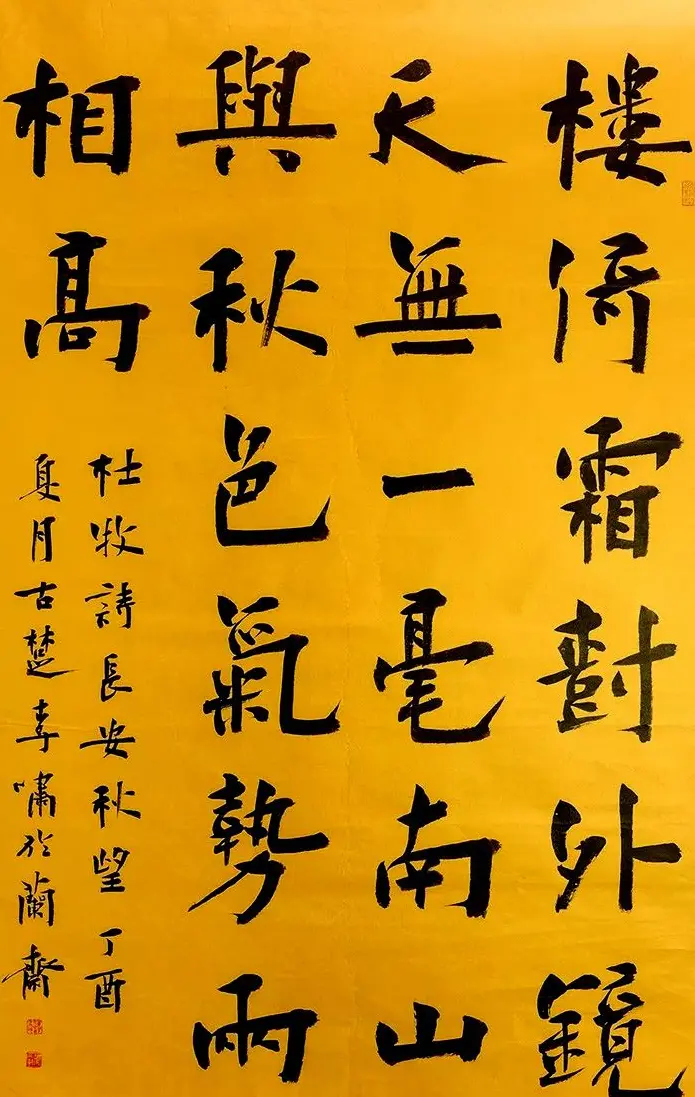 樓倚霜樹外鏡
天無一毫南山
與秋色氣勢兩
相高
杜牧詩長安秋望 丁酉
夏月古楚李嘯於蘭齋